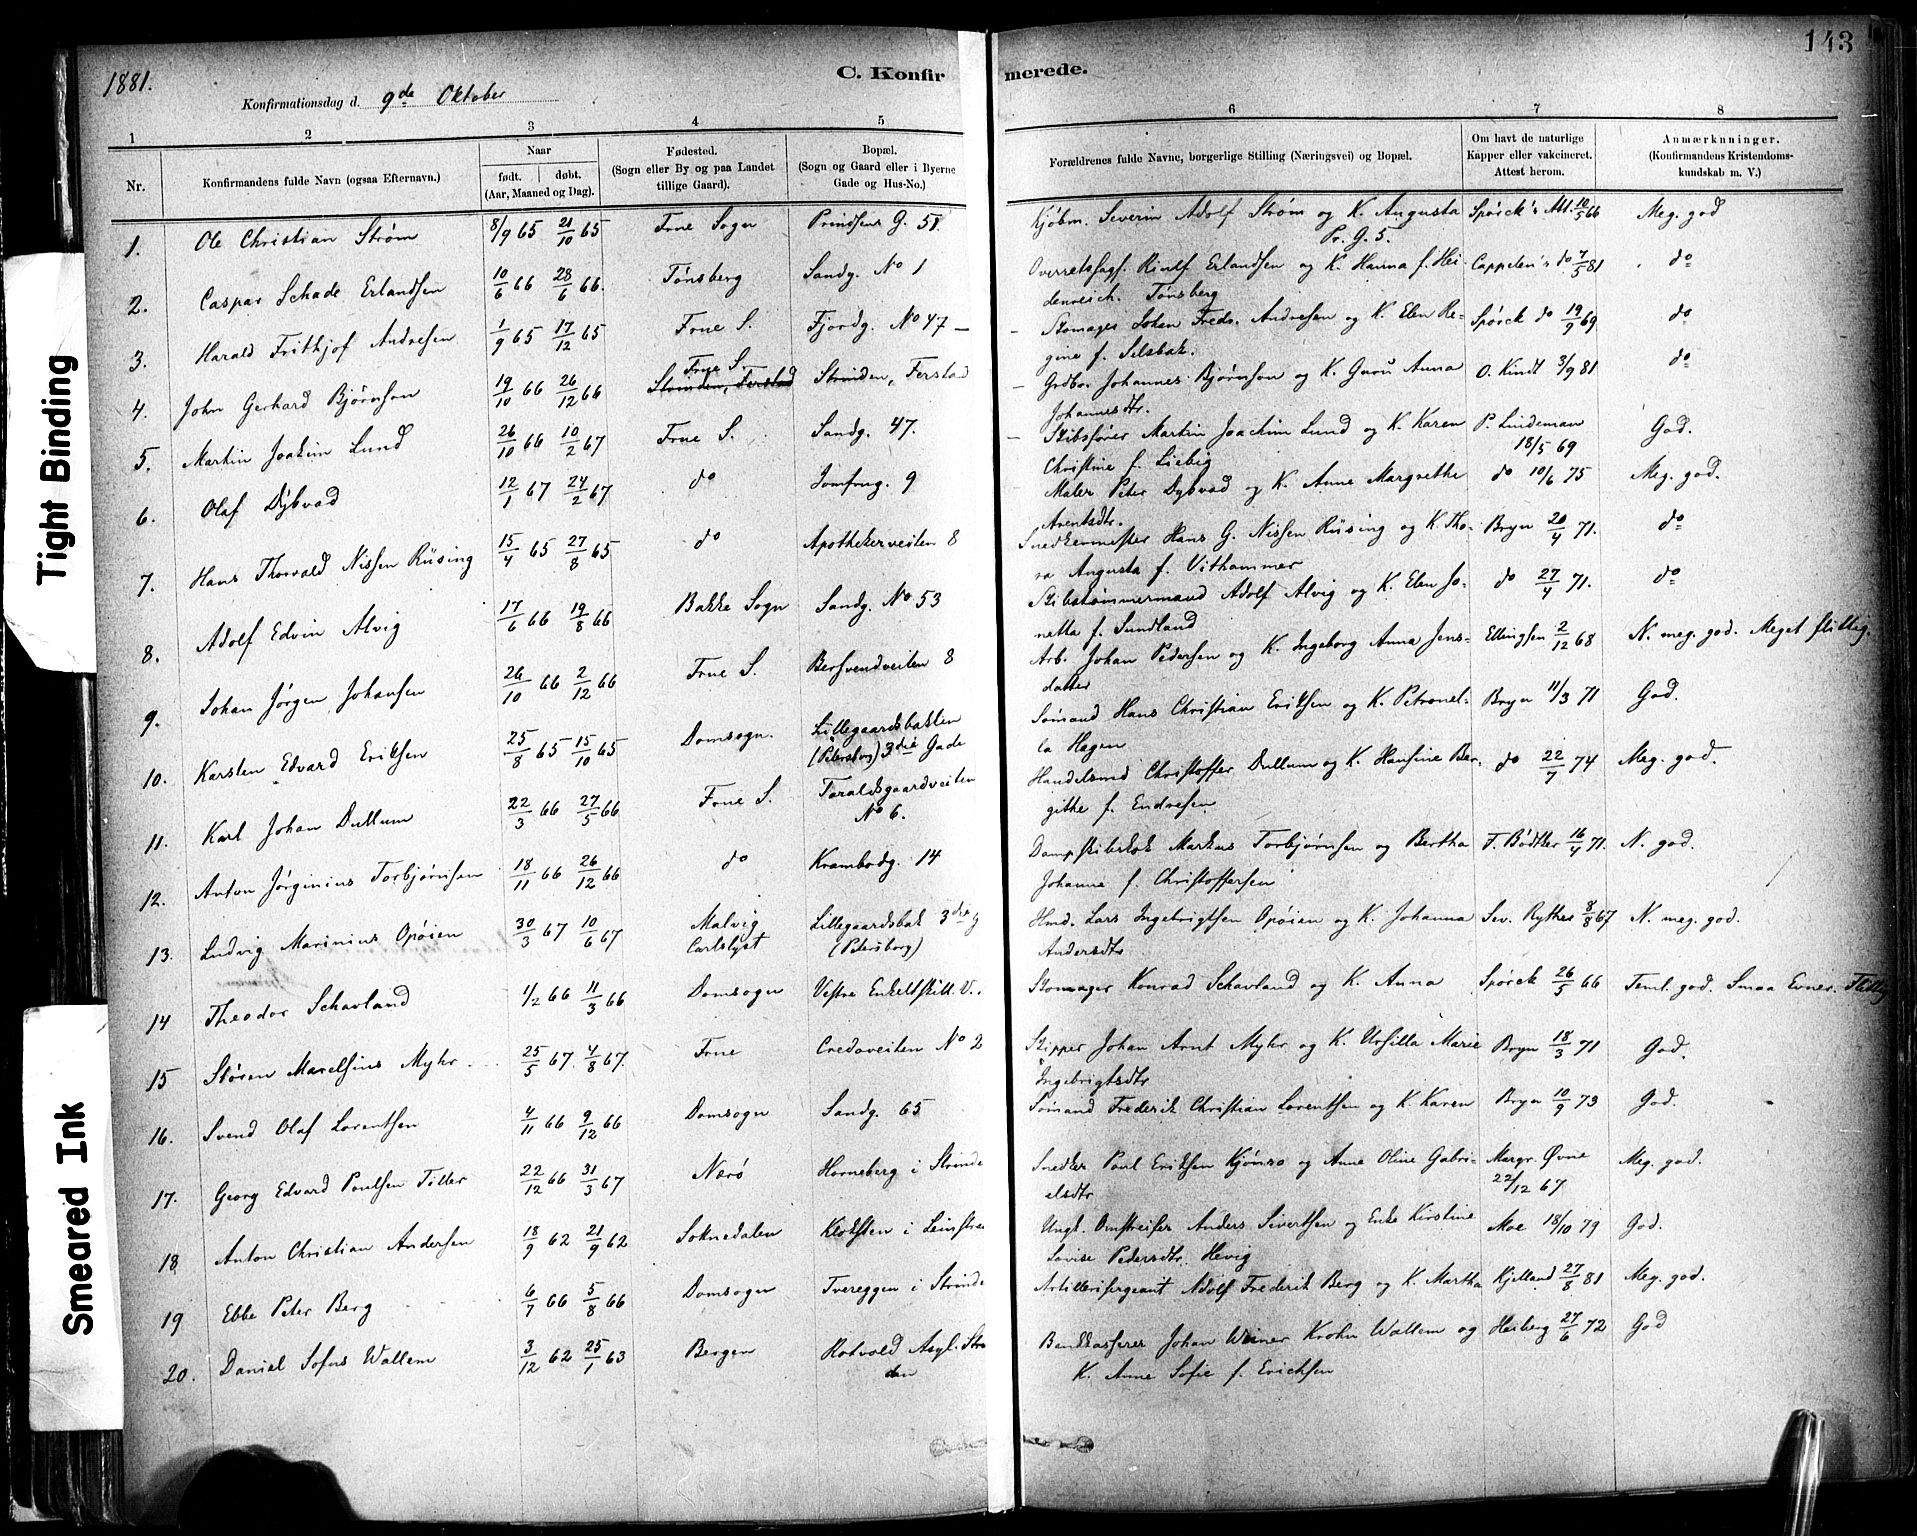 1881.
C. Konfirmerede.
143
Konfirmationsdag d. 9de Oktober
1 2 3 4 5 6 7 8
Nr.
Konfirmandens fulde Navn (ogsaa Efternavn).
Naar
født. døbt.
(Aar, Maaned og Dag).
Fødested.
(Sogn eller By og paa Landet
tillige Gaard).
Bopæl.
(Sogn og Gaard eller i Byerne
Gade og Hus-No.)
Forældrenes fulde Navne, borgerlige Stilling (Næringsvei) og Bopæl.
Om havt de naturlige
Kapper eller vakcineret.
Attest herom.
Anmærkninger.
(Konfirmandens Kristendoms-
kundskab m. V.)
1. Ole Christian Strøm 8/9 65 21/10 65 Frue Sogn Prindsens G. 51. Kjøbm. Severin Adolf Strøm og K. Augusta Spørck's Att. 10/5 66 Meg. god
Pr. G. 5.
2. Caspar Schade Erlandsen 10/6 66 28/6 66. Tønsberg Sandg. No 1 Overretssagf. Rinlf Erlandsen og K. Hanna f. Hei- Cappelen's do 7/5 81 do
denreich. Tønsberg
3. Harald Frithjof Andresen 1/9 65 17/12 65 Frue S. Fjordg. No 47 Skomager Johan Fredr. Andresen og K. Elen Re- Spørck do 19/9 69 do
gine f. Selsbak.
4. John Gerhard Bjørnson 19/10 66 26/12 66 Frue S. Strinden, Ferstad Strinden, Ferstad Grdbr. Johannes Bjørnson og K. Guru Anna O. Kindt 3/9 81 do
Johannesdtr.
5. Martin Joakim Lund 26/10 66 10/2 67 Frue S. Sandg. 47. Skibsfører Martin Joachim Lund og K. Karen P. Lindeman God.
Christine f. Liebig 18/5 69
6. Olaf Dybvad 12/1 67 24/2 67 do Jomfrug. 9 Maler Peter Dybvad og K. Anne Margrethe do 10/6 75 Meg. god.
Arentsdtr.
7. Hans Thorvald Nissen Rüsing 15/4 65 27/8 65 do Apothekerveiten 8 Snedkermester Hans G. Nissen Rüsing og K. Tho- Bryn 20/4 71. do
ra Augusta f. Vithammer
8. Adolf Edvin Alvig 17/6 66 19/8 66 Bakke Sogn Sandg. No 53 Skibstømmermand Adolf Alvig og K. Elen Jo- do 27/4 71. do
netta f. Sundland
9. Johan Jørgen Johansen 26/10 66 2/12 66 Frue S. Bersvendveiten 8 Arb. Johan Pedersen og K. Ingeborg Anna Jens- Ellingsen 2/12 68 N. meg. god. Meget flittig.
datter
10. Karsten Edvard Eriksen 25/8 65 15/10 65 Domsogn. Lillegaardsbakken Sømand Hans Christian Eriksen og K. Petronel- Bryn 11/3 71 God.
(Petersborg) 3die Gade la Hagen
11. Karl Johan Dullum 22/3 66 27/5 66 Frue S. Taraldsgaardveiten Handelsmd Christoffer Dullum og K. Hansine Ber- do 22/7 74 Meg. god.
No 6. githe f. Endresen
12. Anton Jørginius Torbjørnsen 18/11 66 26/12 66 do Krambodg. 14 Dampskibskok Markus Torbjørnsen og Bertha F. Bødtker 16/4 71. N. god.
Johanne f. Christoffersen
13. Ludvig Marinius Opøien 30/3 67 10/6 67 Malvig Lillegaardsbak 3die G Hmd. Lars Ingebrigtsen Opøien og K. Johanna Sev. Rythes 8/8 67 N. meg. god.
Carlslyst (Petersborg) Andersdtr
14 Theodor Schavland 1/2 66 11/3 66 Domsogn Vestre Enkeltskill. V. Skomager Konrad Schavland og K. Anna Spørck 26/5 66 Teml. god. Smaa Evner. Flittig
15 Støren Marelsius Myhr 25/5 67. 4/8 67. Frue Credoveiten No 2 Skipper Johan Arnt Myhr og K. Ursilla Marie Bryn 18/3 71 God.
Ingebrigtsdtr
16. Svend Olaf Lorentsen 4/11 66 9/12 66 Domsogn Sandg. 65 Sømand Frederik Christian Lorentsen og K. Karen Bryn 10/9 73 God.
17. Georg Edvard Poulsen Tiller 22/12 66 31/3 67 Nærø Horneberg i Strinde Snedker Poul Eriksen Kjønsø og Anne Oline Gabri- Margr. Øvne Meg. god.
elsdtr 22/12 67
18 Anton Christian Andersen 18/9 62 21/9 62 Soknedalen Klæksten i Leinstre Ungk. Omstreifer Anders Sivertsen og Enke Kirstine Moe 18/10 79 God.
Lovise Pedersdtr. Hevig
19 Ebbe Peter Berg 6/7 66 5/8 66 Domsogn Tvereggen i Strinde Artillerisergeant Adolf Frederik Berg og K. Martha Kjelland 27/8 81 Meg. god.
20. Daniel Sofus Wallem 3/12 62 25/1 63 Bergen Rotvold Asyl. Strin Bankkasserer Johan Weiner Krohn Wallem og Heiberg 27/6 72 God
den K. Anne Sofie f. Erichsen
Tight Binding
Smeared Ink